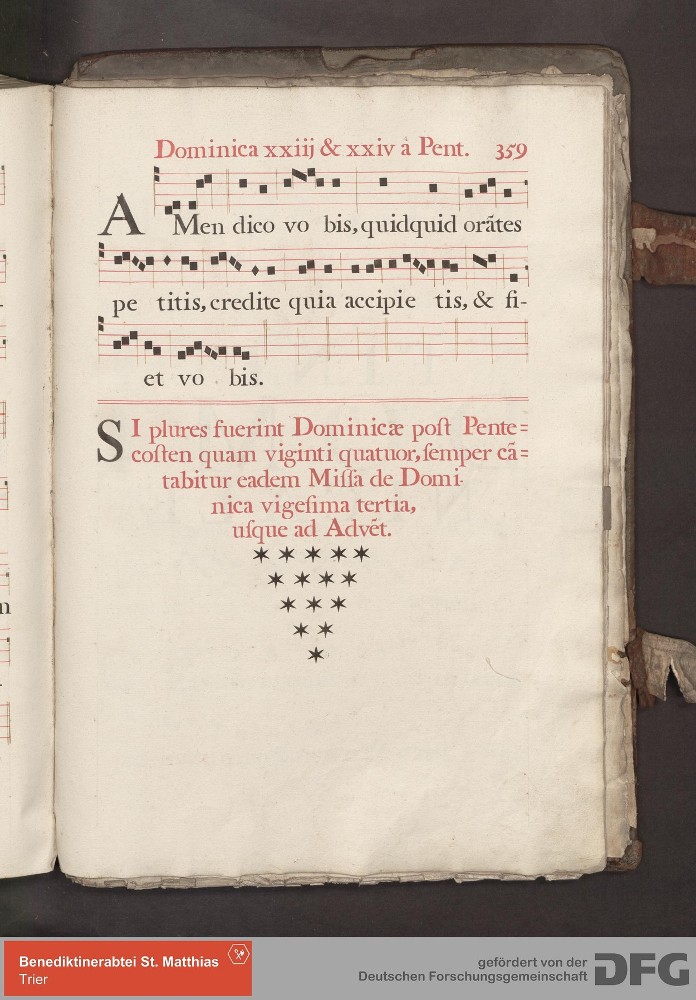 Dominica xxiij & xxiv à Pent. 359
AMen dico vo bis, quidquid orãtes
pe titis, credite quia accipie tis, & fi-
et vo bis.
SI plures fuerint Dominicæ poſt Pente=
coſten quam viginti quatuor, ſemper cã=
tabitur eadem Miſſa de Domi-
nica vigeſima tertia,
uſque ad Advẽt.
Benediktinerabtei St. Matthias
Trier
gefördert von der
Deutschen Forschungsgemeinschaft
DFG